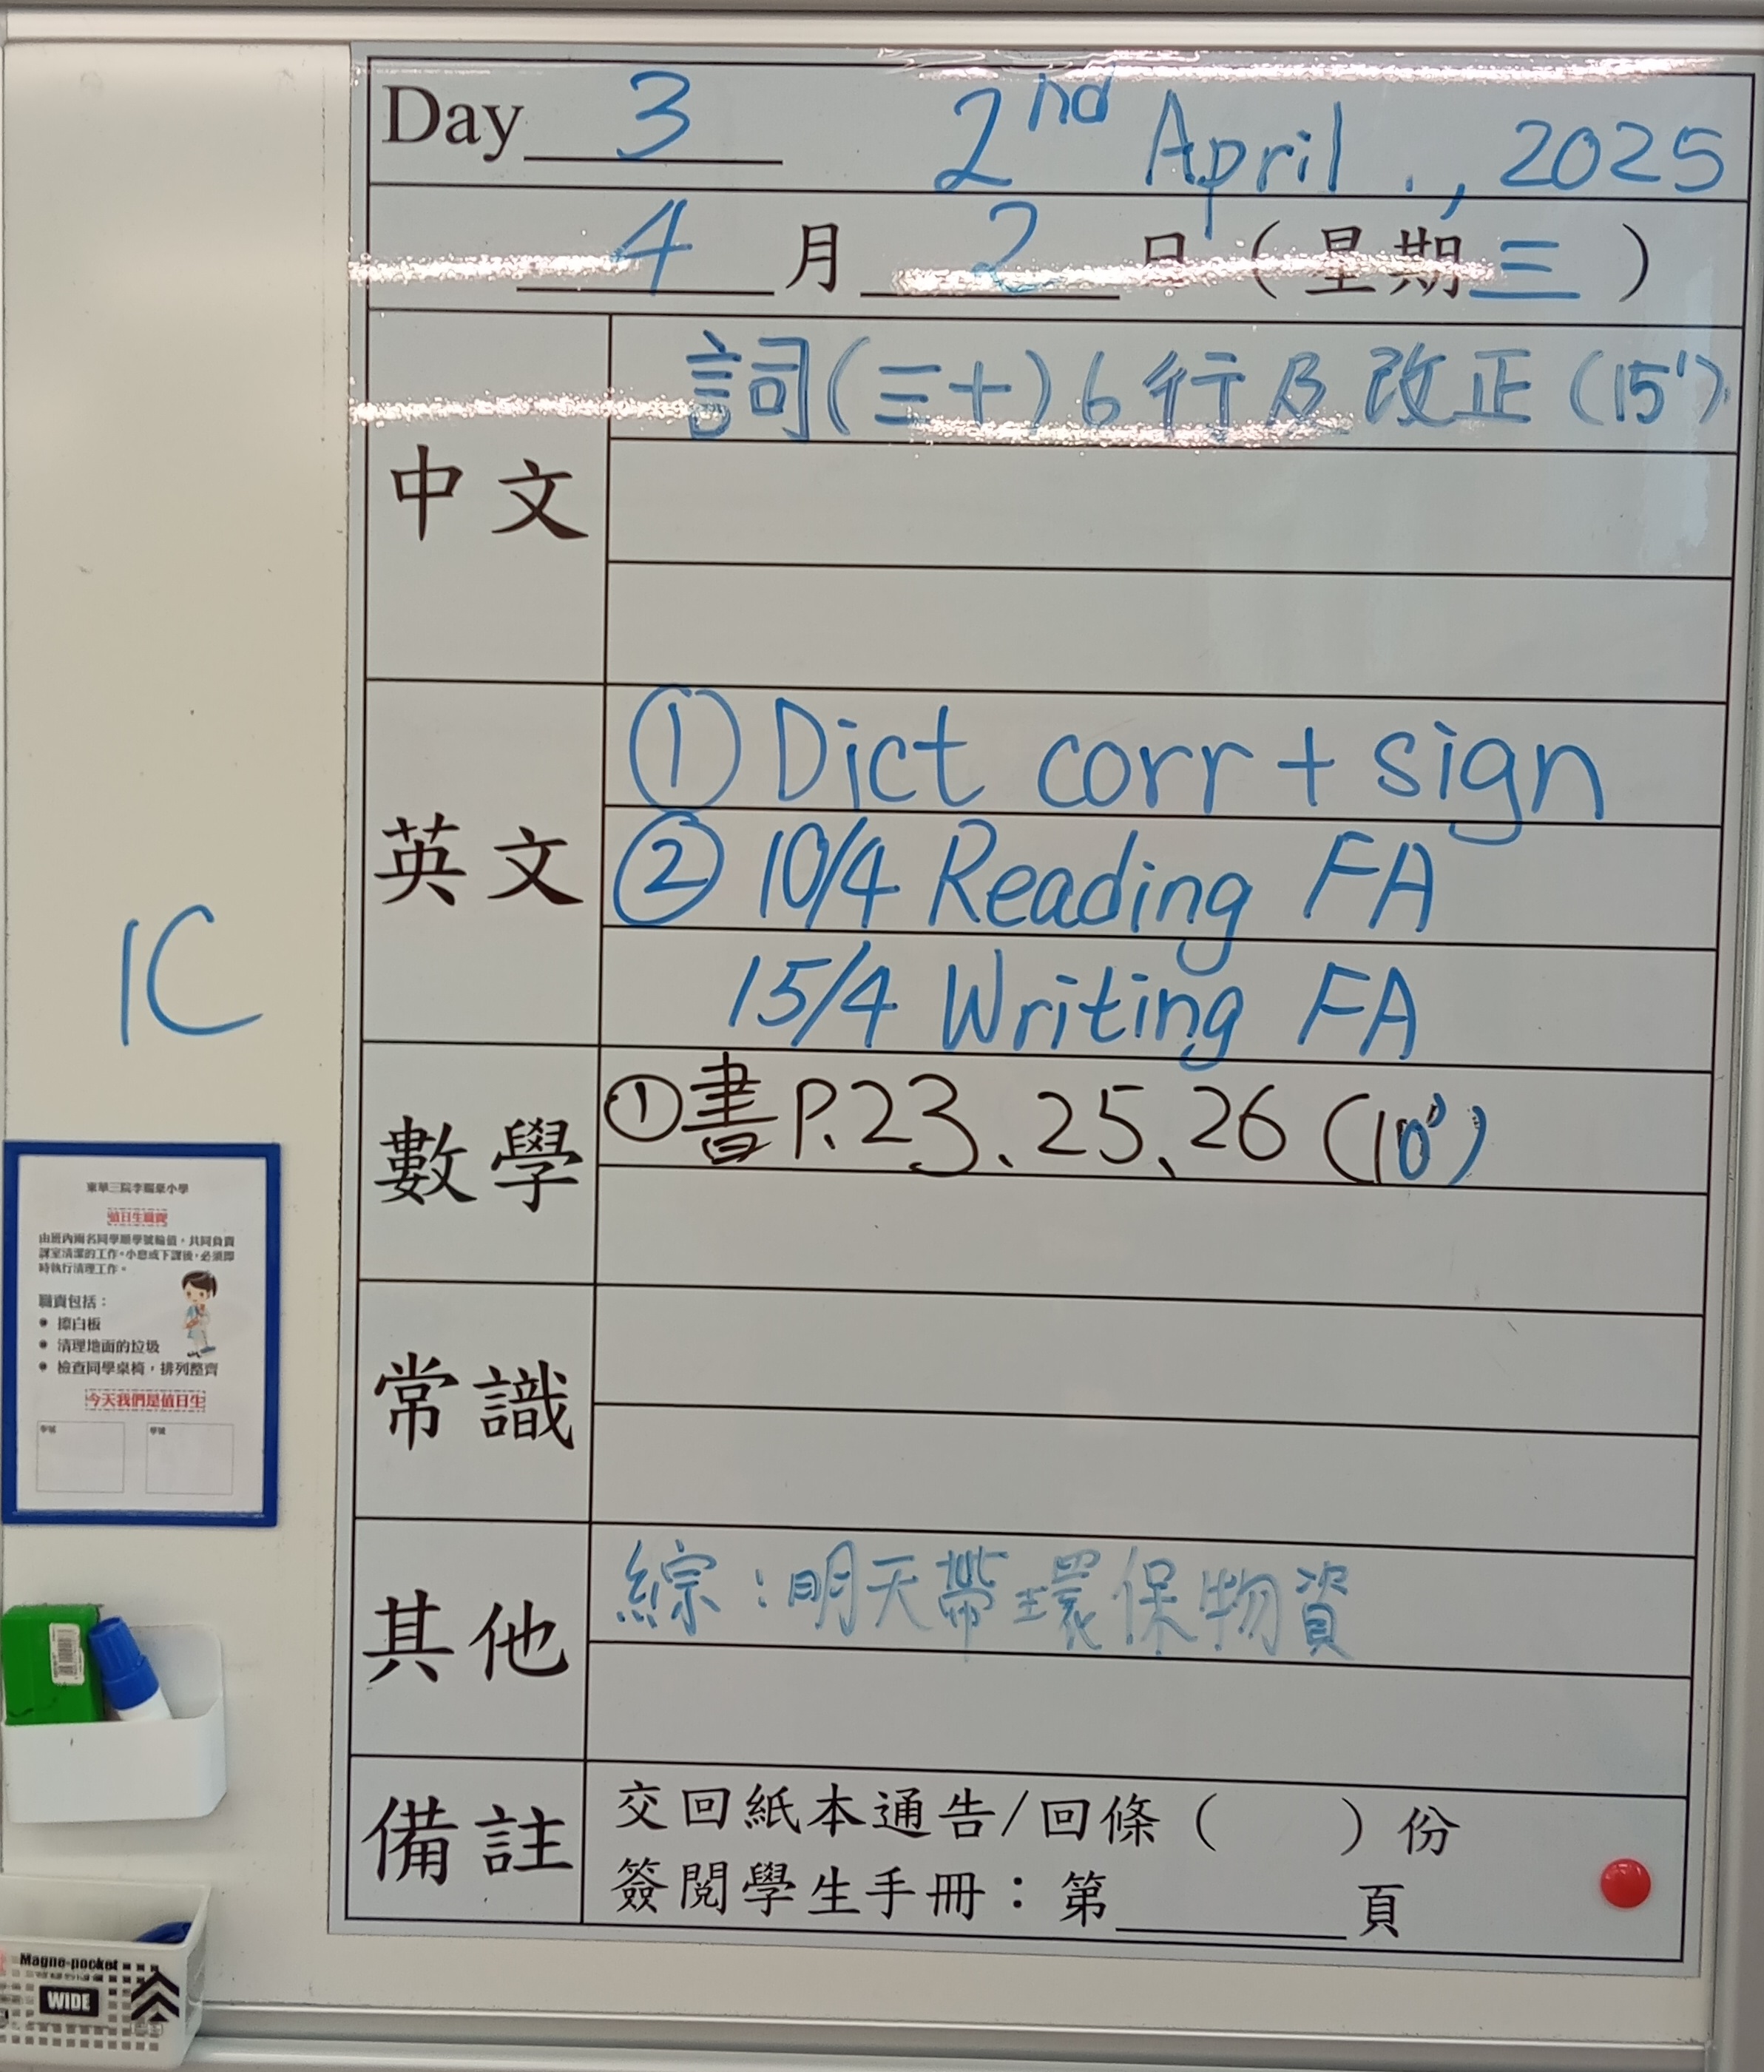 Day 3 2nd April., 2025
4月2日(星期三)
中文
詞(三十)6行及改正(15')
英文
① Dict corr + sign
② 10/4 Reading FA
15/4 Writing FA
數學
①書P.23、25、26(10')
常識
其他
綜:明天帶環保物資
備註
交回紙本通告/回條( )份
簽閱學生手冊:第 頁
1C
值日生職責
由班內兩名同學順學號輪值,共同負責
課室清潔的工作。小息或下課後,必須即
時執行清理工作。
職責包括:
擦白板
清理地面的垃圾
檢查同學桌椅,排列整齊
今天我們是值日生
學號 學號
Magne-pocket
WIDE